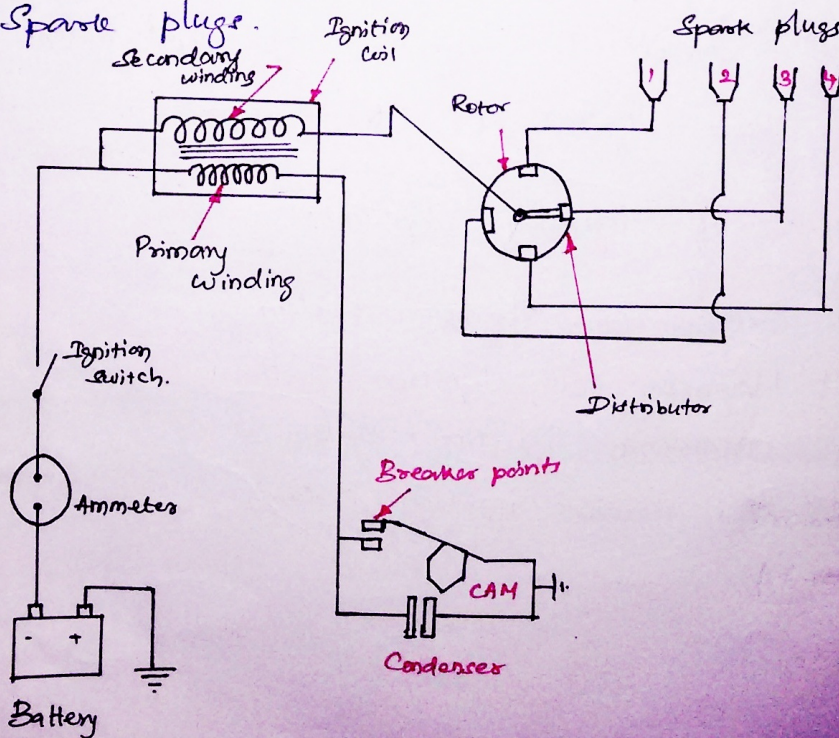 Spark plugs.
Secondary
winding
Ignition
Coil
Spark plugs
1 2 3 4
Rotor
Primary
winding
Ignition
switch.
Distributor
Breaker points
Ammeter
CAM
- +
Condenser
Battery